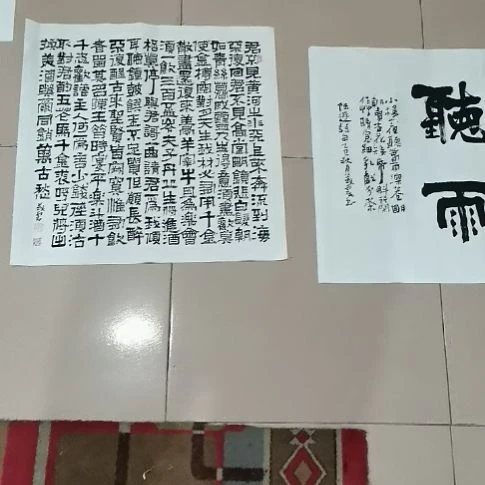 君不見黃河之水天上來奔流到海
不復回君不見高堂明鏡悲白髮朝
如青絲暮成雪人生得意須盡歡莫
使金樽空對月天生我材必有用千金
散盡還復來烹羊宰牛且為樂會
須一飲三百杯岑夫子丹丘生將進酒
杯莫停與君歌一曲請君為我傾
耳聽鐘鼓饌玉不足貴但願長醉
不復醒古來聖賢皆寂寞惟有飲
者留其名陳王昔時宴平樂斗酒十
千恣歡謔主人何為言少錢徑須沽
取對君酌五花馬千金裘呼兒將出
換美酒與爾同銷萬古愁
聽雨
小樓一夜聽春雨深巷明
朝賣杏花矮紙斜行閒
作草晴窗細乳戲分茶
陸游詩